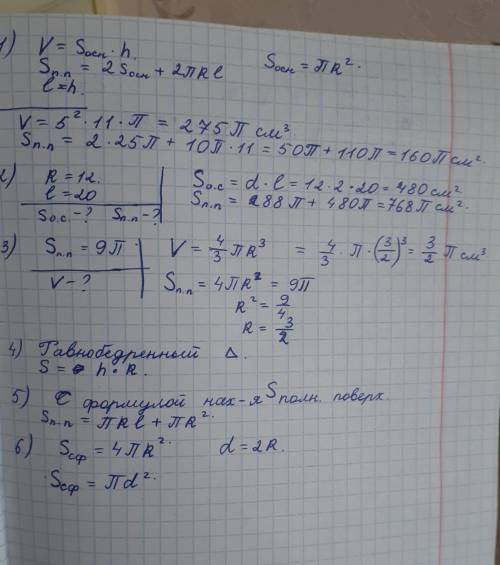 1) V = Sосн · h.
Sосн = πR².
Sп.п = 2Sосн + 2πRl
l = h.
V = 5² · 11 · π = 275π см³.
Sп.п = 2 · 25π + 10π · 11 = 50π + 110π = 160π см².
2) R = 12.
l = 20
Sо.с. - ? Sп.п - ?
Sо.с = d · l = 12 · 2 · 20 = 480 см²
Sп.п = 288π + 480π = 768π см².
3) Sп.п = 9π
V - ?
V = 4/3 πR³ = 4/3 · π · (3/2)³ = 3/2 π см³
Sп.п = 4πR² = 9π
R² = 9/4
R = 3/2
4) Равнобедренный Δ.
S = h · R.
5) С формулой нах-я Sполн. поверх.
Sп.п = πRl + πR².
6) Sсф = 4πR². d = 2R.
Sсф = πd².